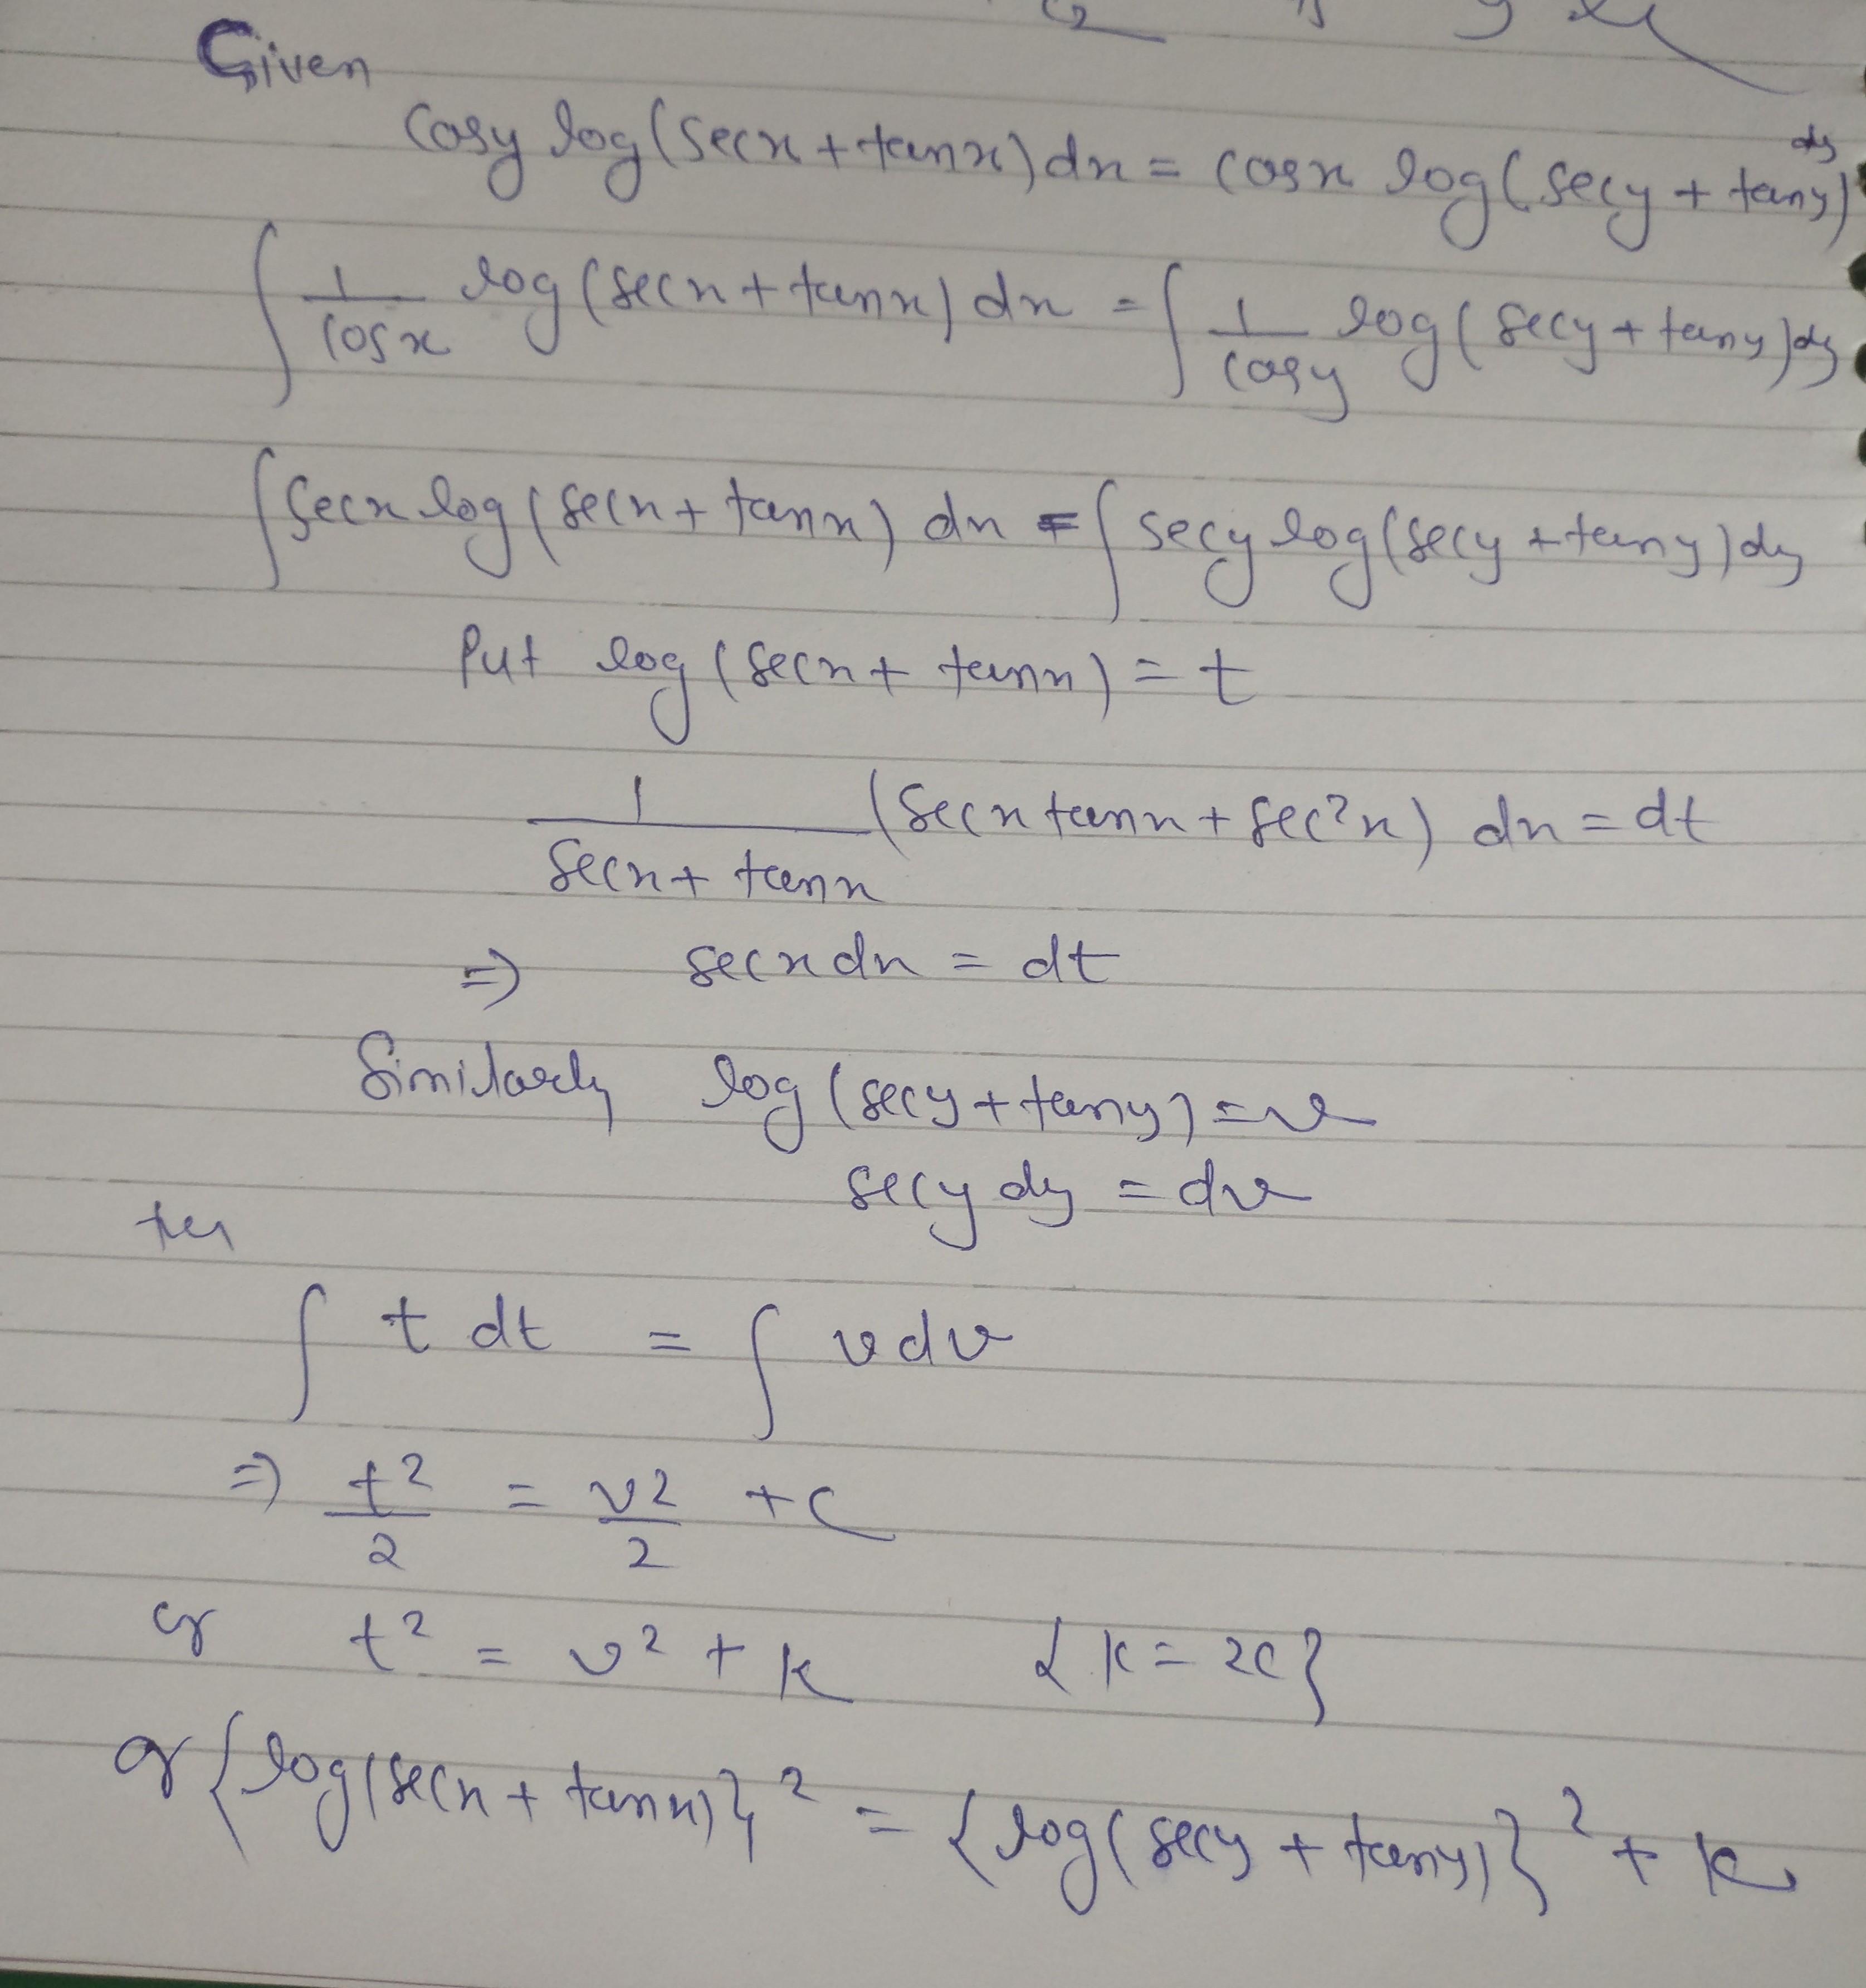 Given
cosy log(secx + tanx) dx = cosx log(secy + tany) dy
∫ 1/cosx log(secx + tanx) dx = ∫ 1/cosy log(secy + tany) dy
∫ secx log(secx + tanx) dx = ∫ secy log(secy + tany) dy
Put log(secx + tanx) = t
1/(secx + tanx) (secx tanx + sec²x) dx = dt
⇒ secx dx = dt
Similarly log(secy + tany) = v
secy dy = dv
∫ t dt = ∫ v dv
⇒ t²/2 = v²/2 + c
or t² = v² + k {k = 2c}
or {log(secx + tanx)}² = {log(secy + tany)}² + k